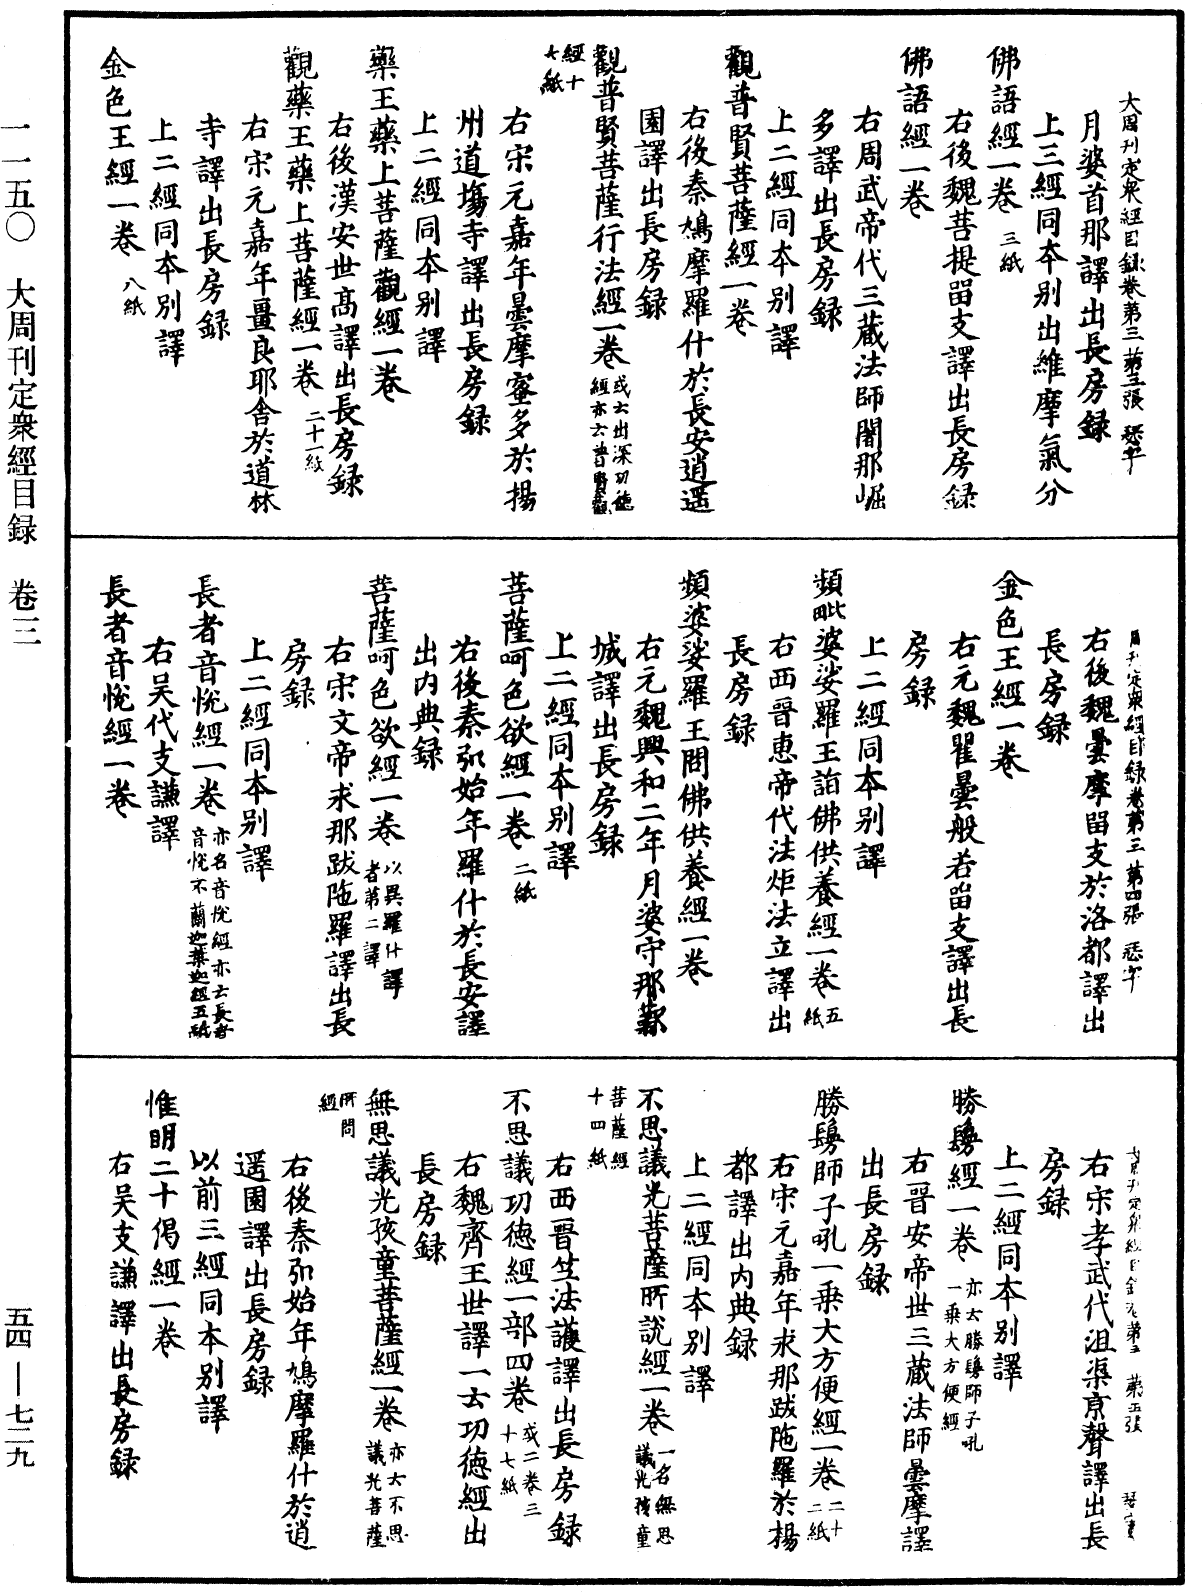 大周刊定衆經目録卷第三 第三張
月婆首那譯出長房録
上三經同本别出維摩氣分
佛語經一卷 三紙
右後魏菩提留支譯出長房録
佛語經一卷
右周武帝代三藏法師闍那崛
多譯出長房録
上二經同本别譯
觀普賢菩薩經一卷
右後秦鳩摩羅什於長安逍遥
園譯出長房録
觀普賢菩薩行法經一卷 或云出深功德
經亦云普賢觀
經十
七紙
右宋元嘉年曇摩蜜多於揚
州道塲寺譯出長房録
上二經同本别譯
藥王藥上菩薩觀經一卷
右後漢安世高譯出長房録
觀藥王藥上菩薩經一卷 二十一紙
右宋元嘉年畺良耶舍於道林
寺譯出長房録
上二經同本别譯
金色王經一卷 八紙
周刊定衆經目録卷第三 第四張
右後魏曇摩留支於洛都譯出
長房録
金色王經一卷
右元魏瞿曇般若留支譯出長
房録
上二經同本别譯
頻毗婆娑羅王詣佛供養經一卷 五
紙
右西晉惠帝代法炬法立譯出
長房録
頻婆娑羅王問佛供養經一卷
右元魏興和二年月婆守那鄴
城譯出長房録
上二經同本别譯
菩薩呵色欲經一卷 二紙
右後秦弘始年羅什於長安譯
出内典録
菩薩呵色欲經一卷 以異羅什譯
者第二譯
右宋文帝求那跋陁羅譯出長
房録
上二經同本别譯
長者音悦經一卷 亦名音悦經亦云長者
音悦不蘭迦葉迦經五紙
右吴代支謙譯
長者音悦經一卷
第五張
右宋孝武代沮渠京聲譯出長
房録
上二經同本别譯
勝鬘經一卷 亦云勝鬘師子吼
一乘大方便經
右晉安帝世三藏法師曇摩譯
出長房録
勝鬘師子吼一乘大方便經一卷 二十
二紙
右宋元嘉年求那跋陁羅於揚
都譯出内典録
上二經同本别譯
不思議光菩薩所説經一卷 一名無思
議光孩童
菩薩經
十四紙
右西晉竺法護譯出長房録
不思議功德經一部四卷 或二卷三
十七紙
右魏齊王世譯一云功德經出
長房録
無思議光孩童菩薩經一卷 亦云不思
議光菩薩
所問
經
右後秦弘始年鳩摩羅什於逍
遥園譯出長房録
以前三經同本别譯
惟明二十偈經一卷
右吴支謙譯出長房録
一一五〇 大周刊定衆經目録 卷三 五四—七二九